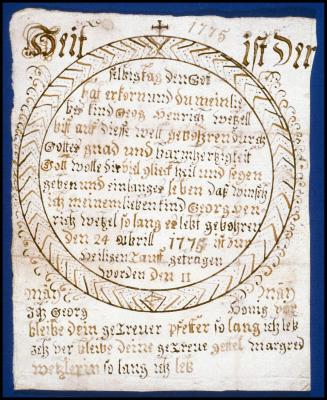 1775
Heit ist Der
selbig tag den Got
hat erkorn und du mein lie
bes kind Georg Henrich Wetzell
bist auf diesse welt gebohren durch
Gottes gnad und barmhertzigkeit
Gott wolle dir viel glick heil und segen
geben und ein langes leben das winsch
ich meinem lieben kind Georg Hen-
rich wetzel so lang er lebt gebohren
den 24 Abrill 1775 ist zur
Heiligen Tauff getragen
worden den 11
may may
Ich Georg Honig
bleibe dein getreuer pfetter so lang ich leb
Ich bleibe deine getreue gettel margred
wetzlerin so lang ich leb